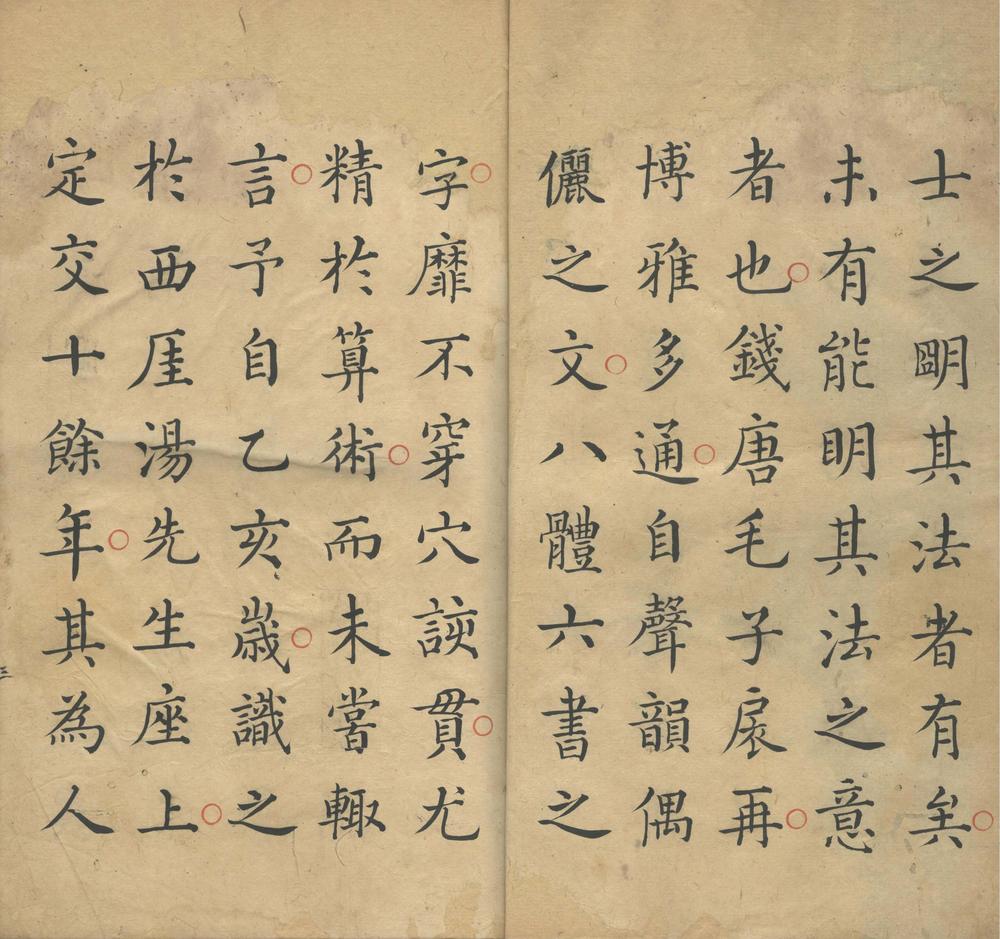 士之朙其法者有矣
未有能明其法之意
者也錢唐毛子扆再
博雅多通自聲韻偶
儷之文八體六書之
字靡不穿穴詼貫尤
精於算術而未嘗輙
言予自乙亥歲識之
於西厓湯先生座上
定交十餘年其為人